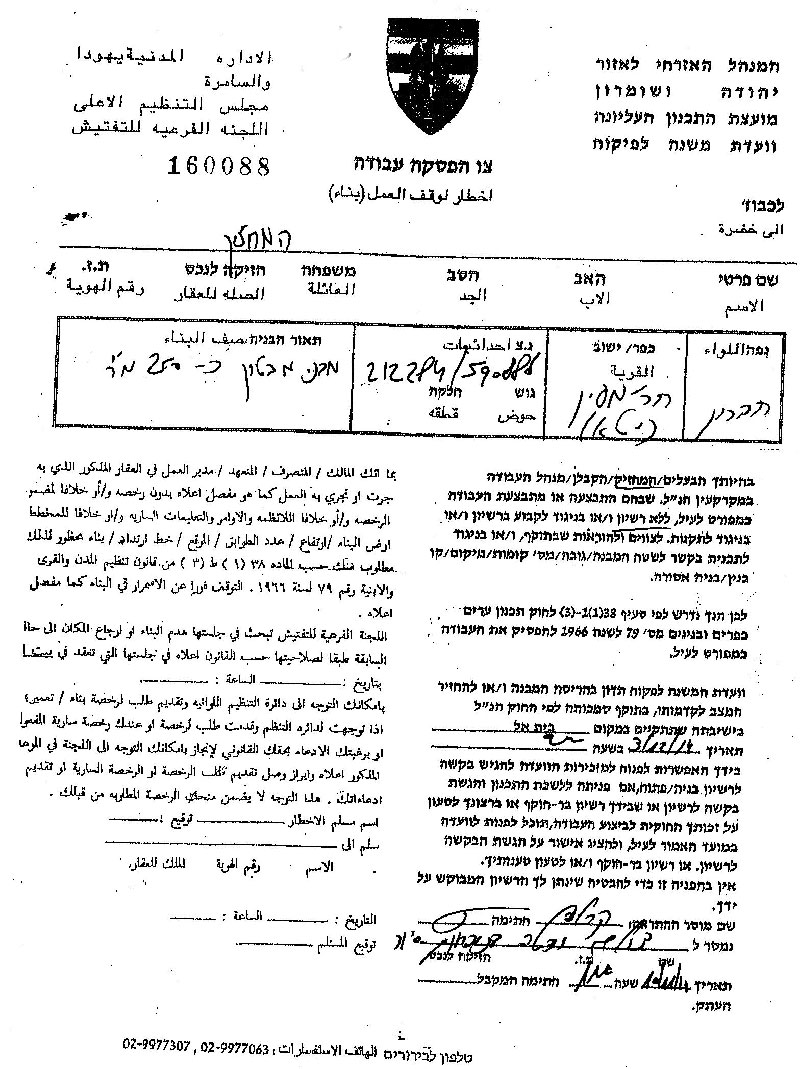 המנהל האזרחי לאזור
יהודה ושומרון
מועצת התכנון העליונה
וועדת משנה לפיקוח
الاداره المدنية يهودا
والسامرة
مجلس التنظيم الاعلى
اللجنه الفرعيه للتفتيش
160088
צו הפסקת עבודה
اخطار لوقف العمل (بناء)
לכבוד
الى حضرة
המחזיק
שם פרטי האב הסב משפחה חזיקה לנכס ת.ז.
الاسم الاب الجد العائلة الصله للعقار رقم الهوية
נפה اللواء
חברון
כפר/ ישוב
القرية
נ.צ احداثيات
212284/590886
גוש חלקה
حوض قطعه
תאור הבניה صيف البناء
מבנה מבטון כ- 250 מ"ר
בהיותך הבעלים/המחזיק/הקבלן/מנהל העבודה
במקרקעין הנ"ל. שבהם התבצעה או מתבצעת העבודה
כמפורט לעיל, ללא רשיון ו/או בניגוד לקבוע ברשיון ו/או
בניגוד לתקנות. לצווים ולהוראות שבתוקף, ו/או בניגוד
לתכנית בקשר לשטח המבנה/גובה/מס' קומות/מיקום/קו
בנין/בניה אסורה.
לכן הנך נדרש לפי סעיף 38(1)-(3) לחוק תכנון ערים
כפרים ובנינים מס' 79 לשנת 1966 להפסיק את העבודה
כמפורט לעיל.
וועדת המשנה לפקוח תדון בהריסת המבנה ו/או להחזיר
המצב לקדמותו, בתוקף סמכותה לפי החוק הנ"ל
בישיבתה שתתקיים במקום בית אל
תאריך 3/12/14 בשעה
בידך האפשרות לפנות למזכירות הוועדה להגיש בקשה
לרשיון בניה/פתוח, אם פניתה ללשכת התכנון והגשת
בקשה לרשיון או שבידך רשיון בר-תוקף או ברצונך לטעון
על זכותך החוקית לביצוע העבודה, תוכל לפנות לוועדה
במועד האמור לעיל, ולהציג אישור על הגשת הבקשה
לרשיון. או רשיון בר-תוקף ו/או לטעון טענותיך.
אין בהפניה זו כדי להבטיח שינתן לך הרשיון המבוקש על
ידך.
שם מוסר ההתראה: חתימה
נמסר ל
שם ת.ז. חזיקה לנכס
תאריך שעה חתימה המקבל
העתק.
بما انك المالك / المتصرف / المتعهد / مدير العمل في العقار المذكور الذي به
جرت او تجري به العمل كما هو مفصل اعلاه بدون رخصه و/أو خلافا لمضمو
الرخصه و/أو خلافا للانظمه والاوامر والتعليمات الساريه و/او خلافا للمخطط
اوض البناء /ارتفاع / عدد الطوابق / الموقع / خط ارتداد / بناء محظور لذلك
مطلوب منك حسب الماده ٣٨ (١) ط (٣) من قانون تنظيم المدن والقرى
والابنية رقم ٧٩ لسنة ١٩٦٦. التوقف فورا عن الاستمرار في البناء كما مفصل
اعلاه.
اللجنه الفرعية للتفتيش تبحث في جلستها هدم البناء او ارجاع المكان الى حاا
السابقة طبقا لصلاحيتها حسب القانون اعلاه في جلستها التي تنعقد في
بتاريخ: الساعة:
بامكانك التوجه الى دائرة التنظيم اللوائيه وتقديم طلب لرخصة بناء / تعمير؛
اذا توجهت لدائره التنظم وقدمت طلب لرخصة او عندك رخصة سارية المفعوا
او برغبتك الادعاء بحقك القانوني لإنجاز بامكانك التوجه الى اللجنة في الموعا
المذكور اعلاه وابراز وصل تقديم طلب الرخصة او الرخصة السارية او تقديم
ادعاءاتك. هذا التوجه لا يضمن منحك الرخصة المطلوبه من قبلك.
اسم مسلم الاخطار توقيع:
سلم الى
الاسم رقم الهوية المالك للعقار
التاريخ: الساعة:
توقيع المستلم
טלפון לבירורים الهاتف الاستفسارات: 02-9977063 , 02-9977307